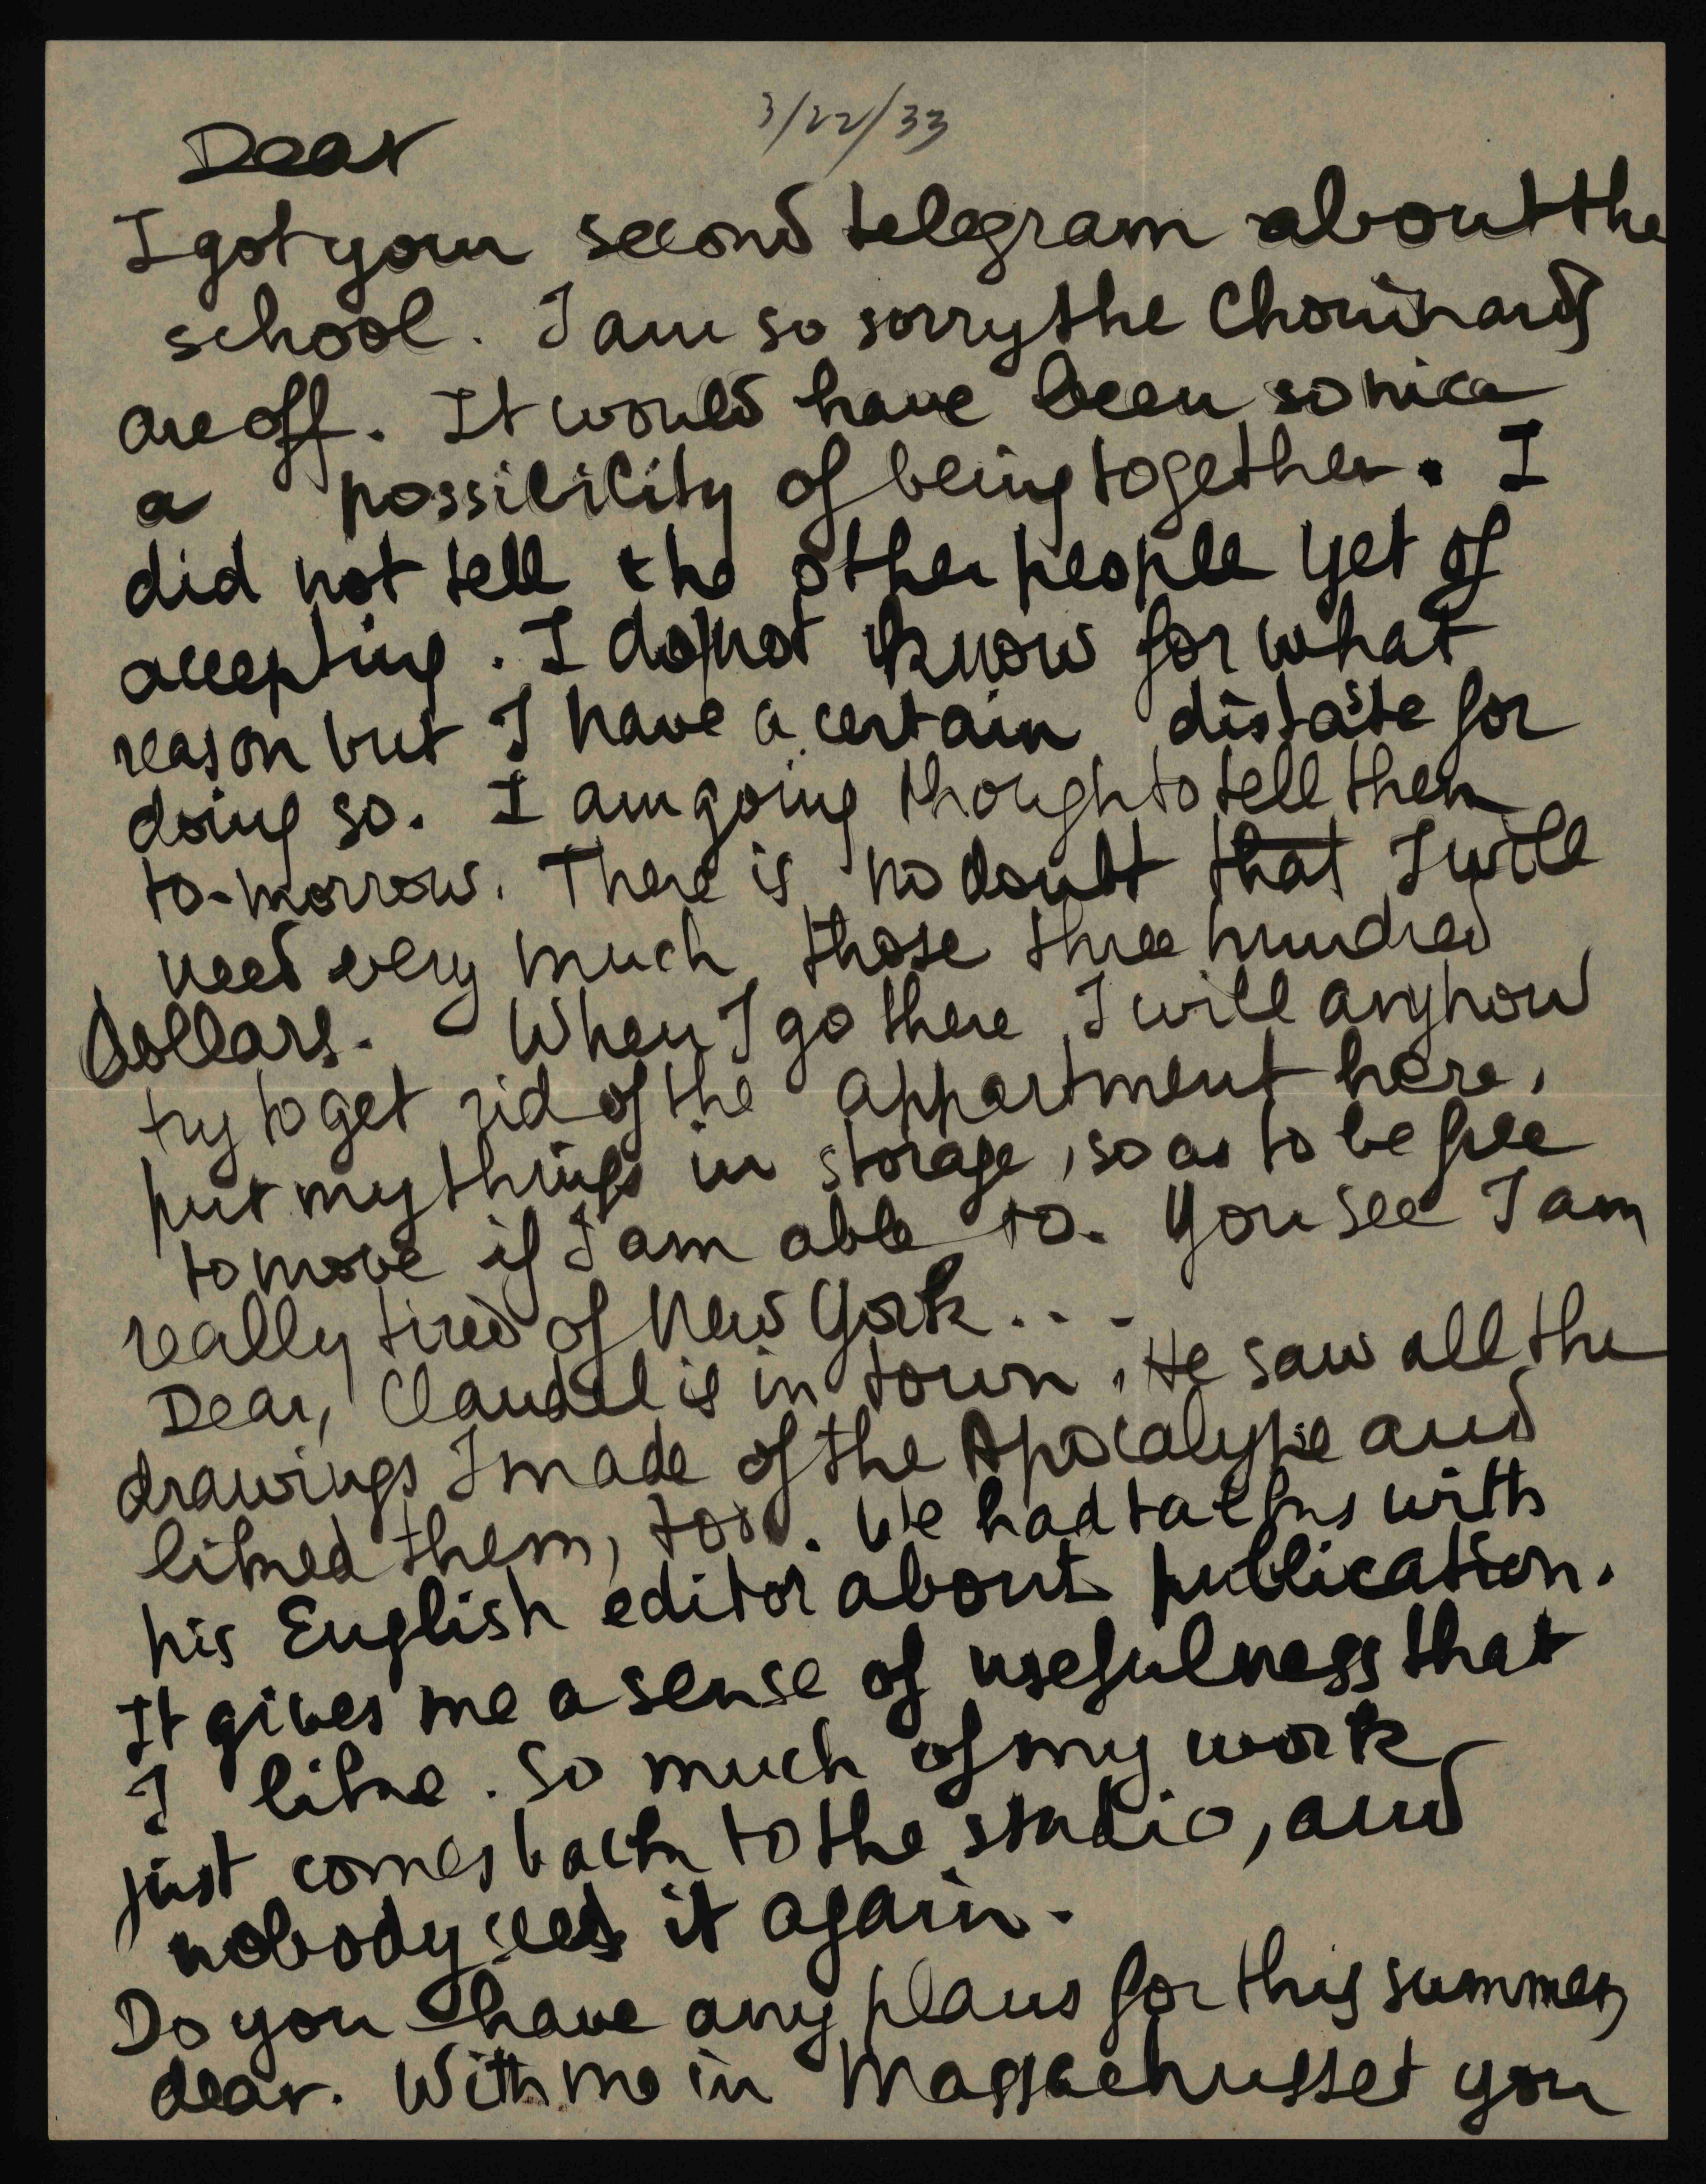 3/22/33
Dear
I got your second telegram about the
school. I am so sorry the Chouinards
are off. It would have been so nice
a possibility of being together. I
did not tell the other people yet of
accepting. I do not know for what
reason but I have a certain distaste for
doing so. I am going though to tell them
to-morrow. There is no doubt that I will
need very much those three hundred
dollars. When I go there I will anyhow
try to get rid of the appartment here,
put my things in storage, so as to be free
to move if I am able to. You see I am
really tired of New York...
Dear, Claudel is in town. He saw all the
drawings I made of the Apocalypse and
liked them, too. We had talks with
his English editor about publication.
It gives me a sense of usefulness that
I like. So much of my work
just comes back to the studio, and
nobody sees it again.
Do you have any plans for this summer,
dear. With me in Massachusset you